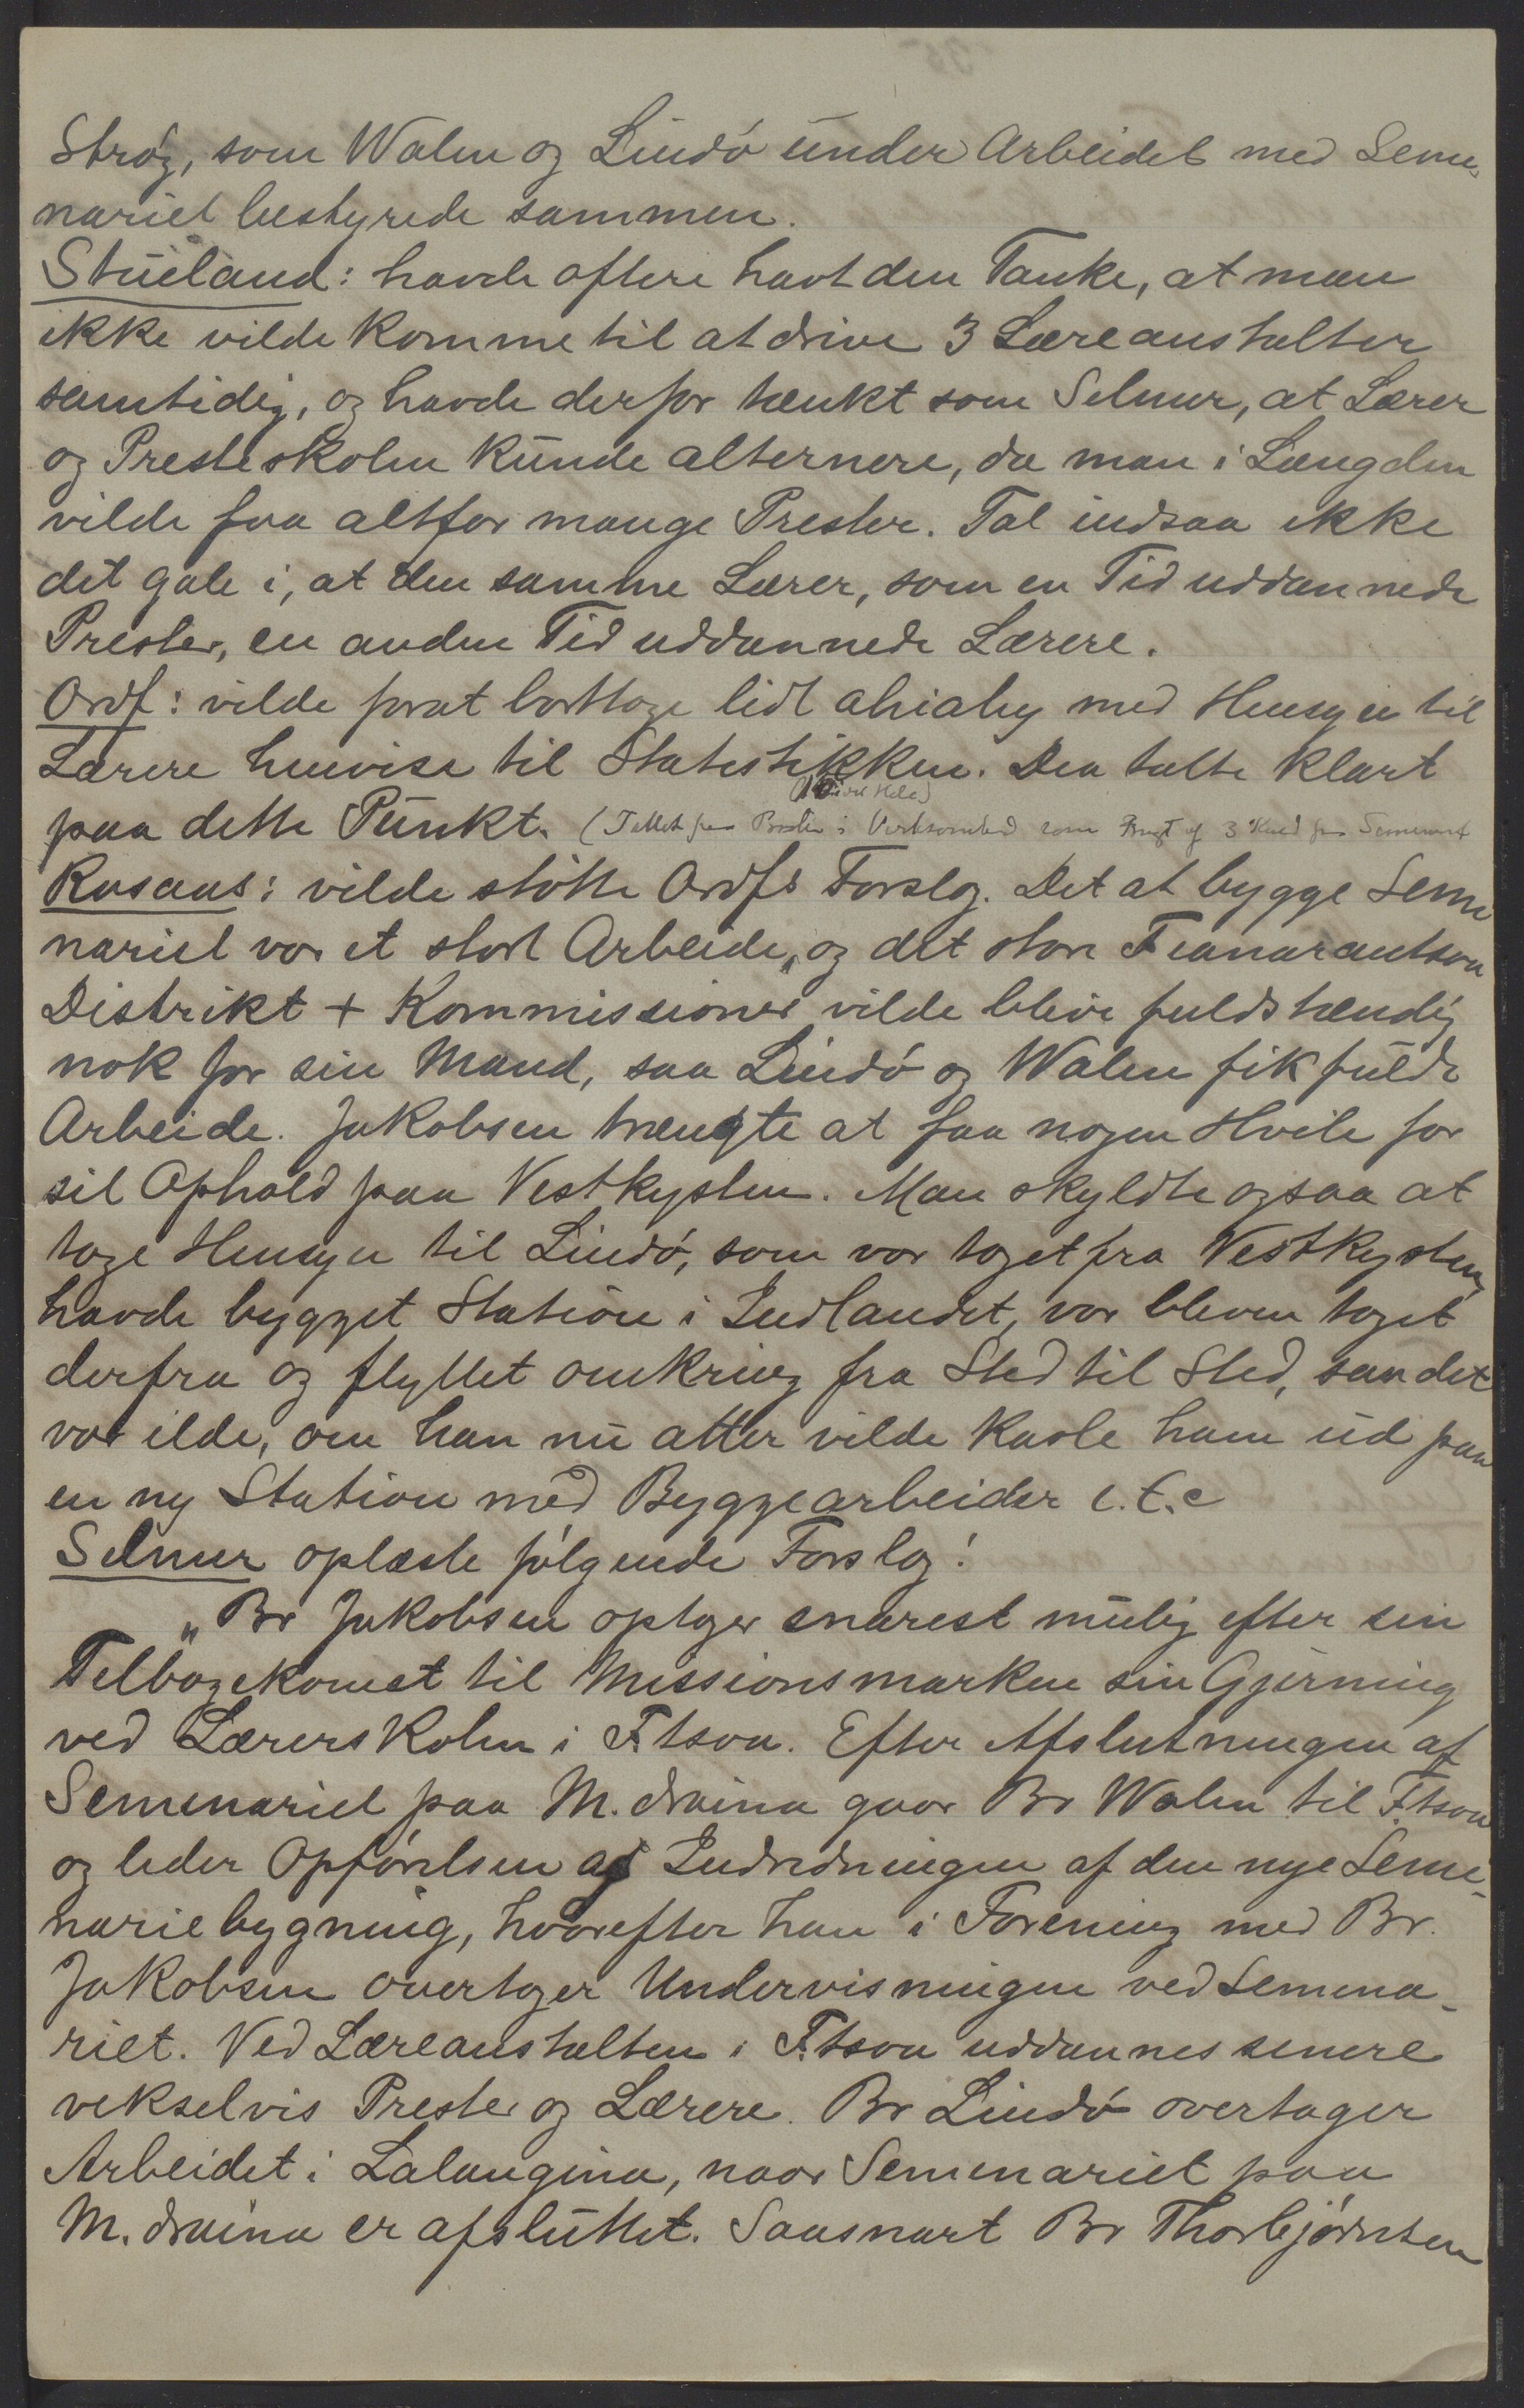 Strøg, som Walen og Lindø under Arbeidet med Semi-
nariet bestyrede sammen.
Stueland: havde oftere havt den Tanke, at man
ikke vilde komme til at drive 3 Læreanstalter
samtidig, og havde derfor tænkt som Selmer, at Lærer
og Presteskolen kunde alternere, da man i Længden
vilde faa altfor mange Prester. Tal indsaa ikke
det gale i, at den samme Lærer, som en Tid uddannede
Prester, en anden Tid uddannede Lærere.
Ordf: vilde for at borttage lidt med Hensyn til
Lærere henvise til Statistikken. Den talte klart
paa dette Punkt. (Tallet paa i Virksomhed som Frugt af 3 Kuld fra Seminariet
Rosaas: vilde støtte Ordfs Forslag. Det at bygge Semi
nariet var et stort Arbeide, og det store Fianarantsoa
Distrikt + Kommissioner vilde blive fuldstændig
nok for sin Mand, saa Lindø og Walen fik fuldt
Arbeide. Jakobsen trængte at faa nogen Hvile for
sit Ophold paa Vestkysten. Man skyldte ogsaa at
tage Hensyn til Lindø, som var taget fra Vestkysten,
havde bygget Station i Indlandet, var bleven taget
derfra og flyttet omkring fra Sted til Sted, saa det
var ilde, om han nu atter vilde kaste ham ud paa
en ny Station med Byggearbeider e.t.c
Selmer oplæste følgende Forslag:
"Br Jakobsen optager snarest mulig efter sin
Tilbagekomst til Missionsmarken sin Gjerning
ved Lærerskolen i F.tsoa. Efter Afslutningen af
Seminariet paa M.draina gaar Br Walen til F.tsoa
og leder Opførelsen af Indredningen af den nye Semi-
nariebygning, hvorefter han i Forening med Br.
Jakobsen overtager Undervisningen ved Semina-
riet. Ved Læreanstalten i F.tsoa uddannes senere
vekselvis Prester og Lærere. Br Lindø overtager
Arbeidet i Lalangina, naar Seminariet paa
M.draina er afsluttet. Saasnart Br Thorbjørnsen